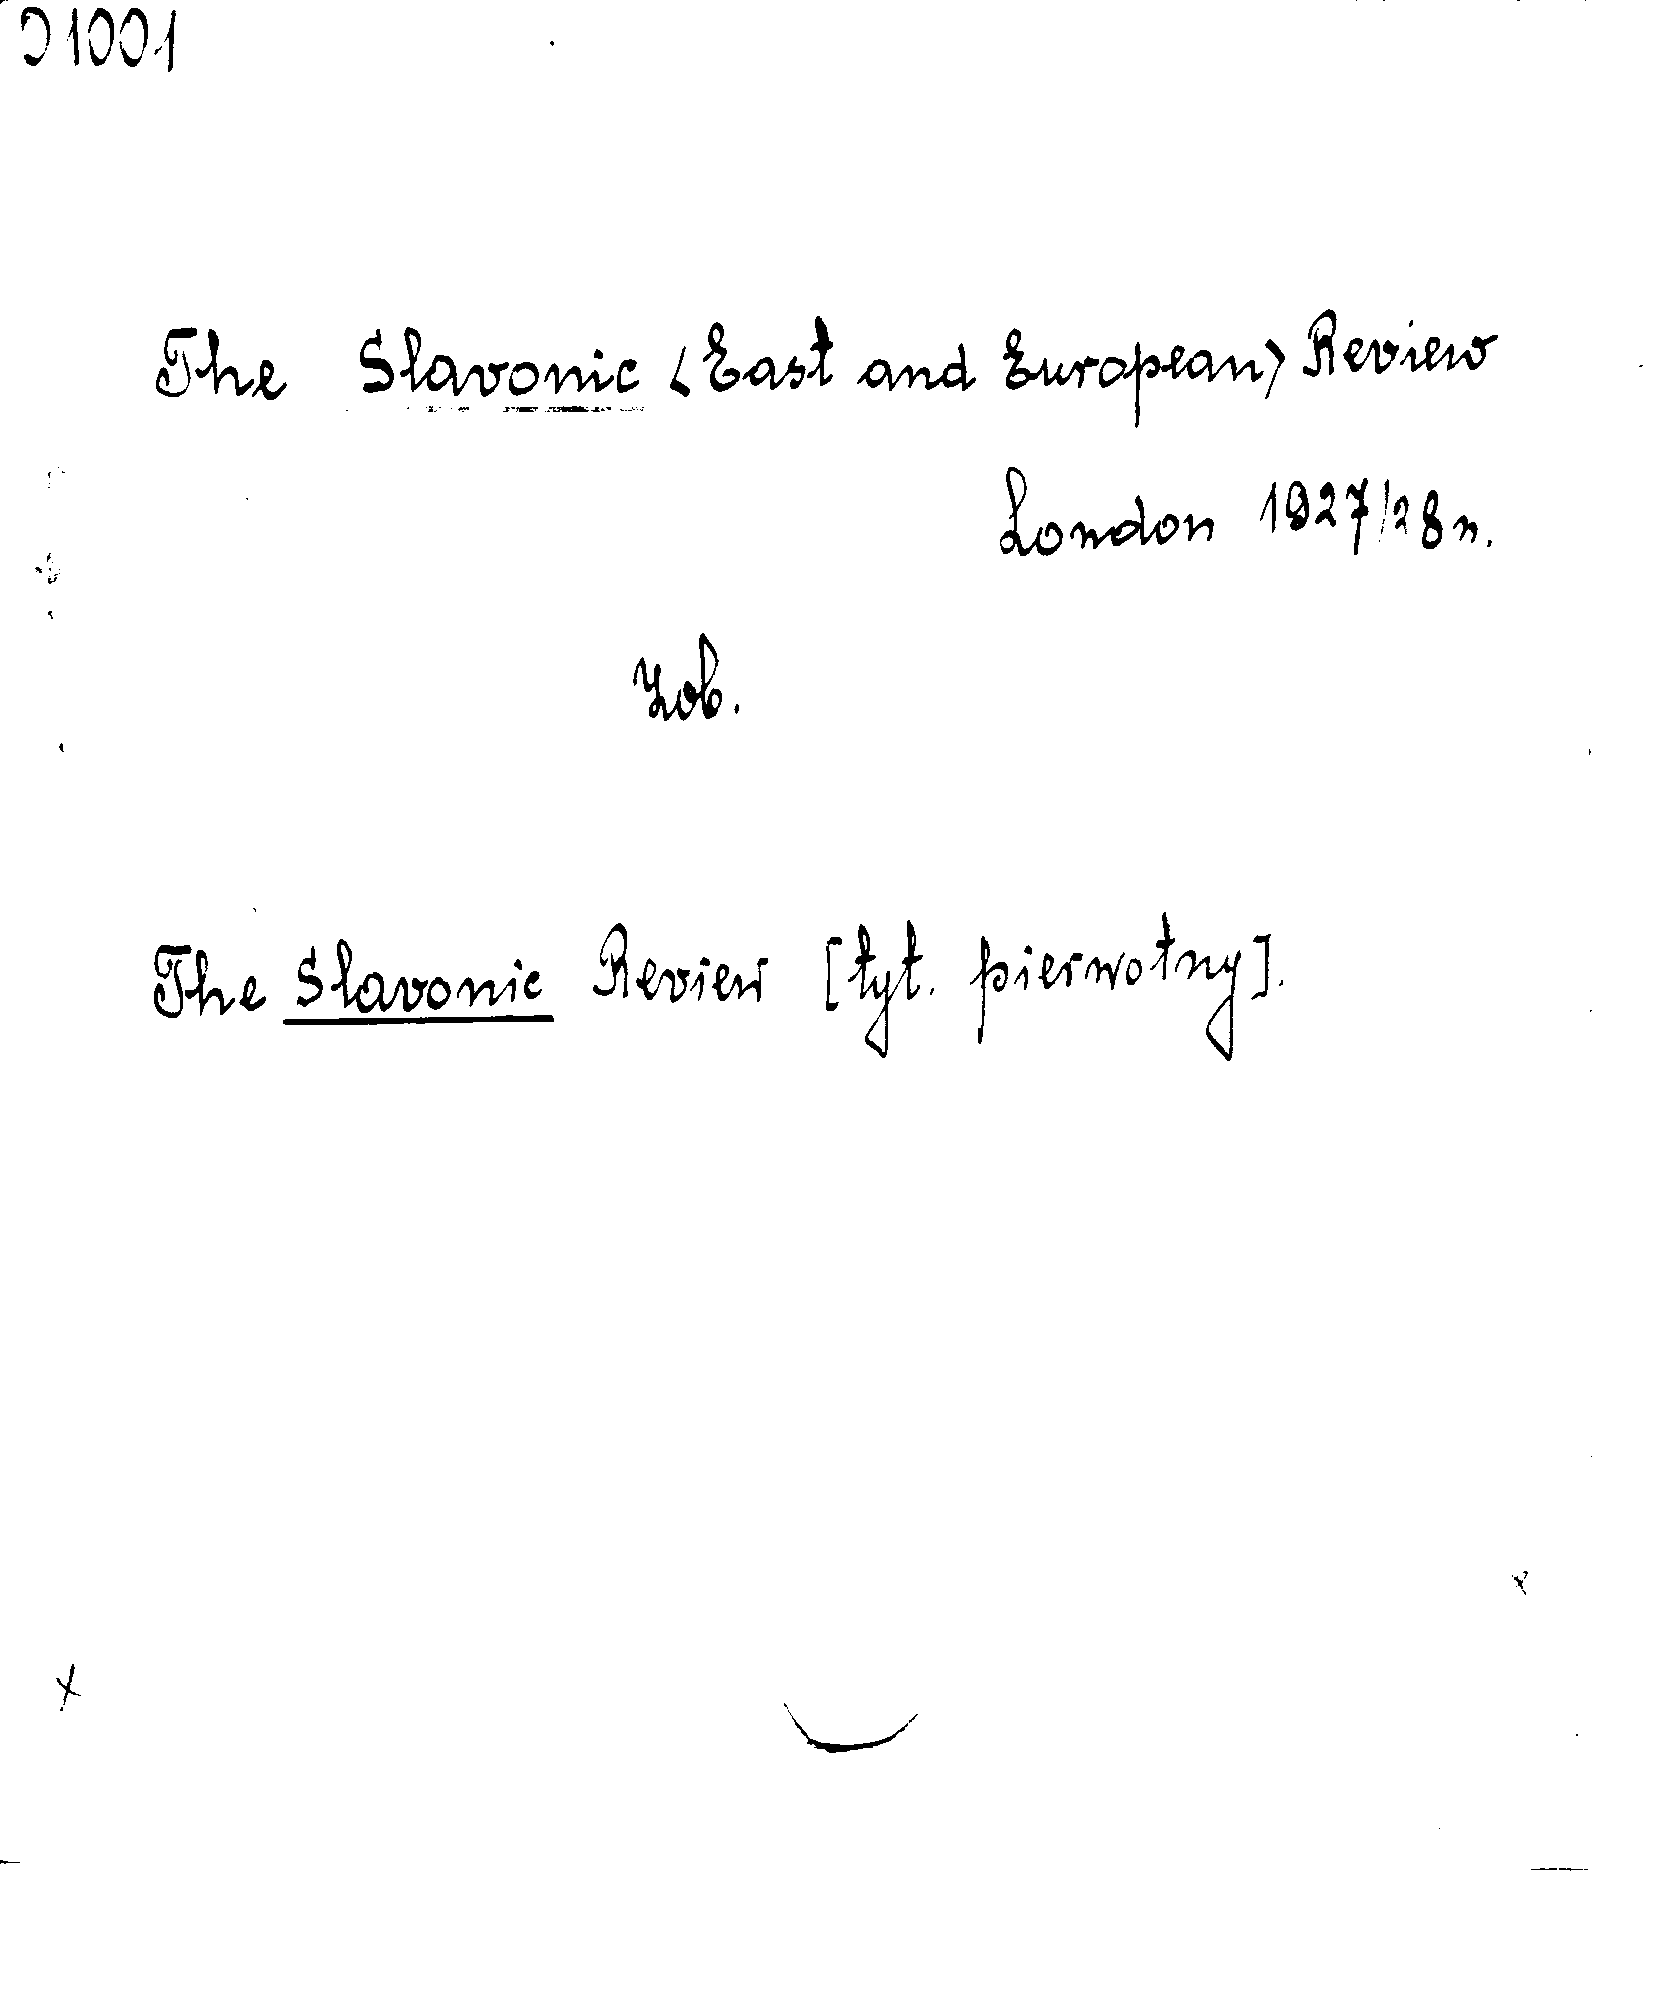 1001
The Slavonic <East and European> Review
London 1927/28 n.
Zob.
The Slavonic Review [tyt. pierwotny].